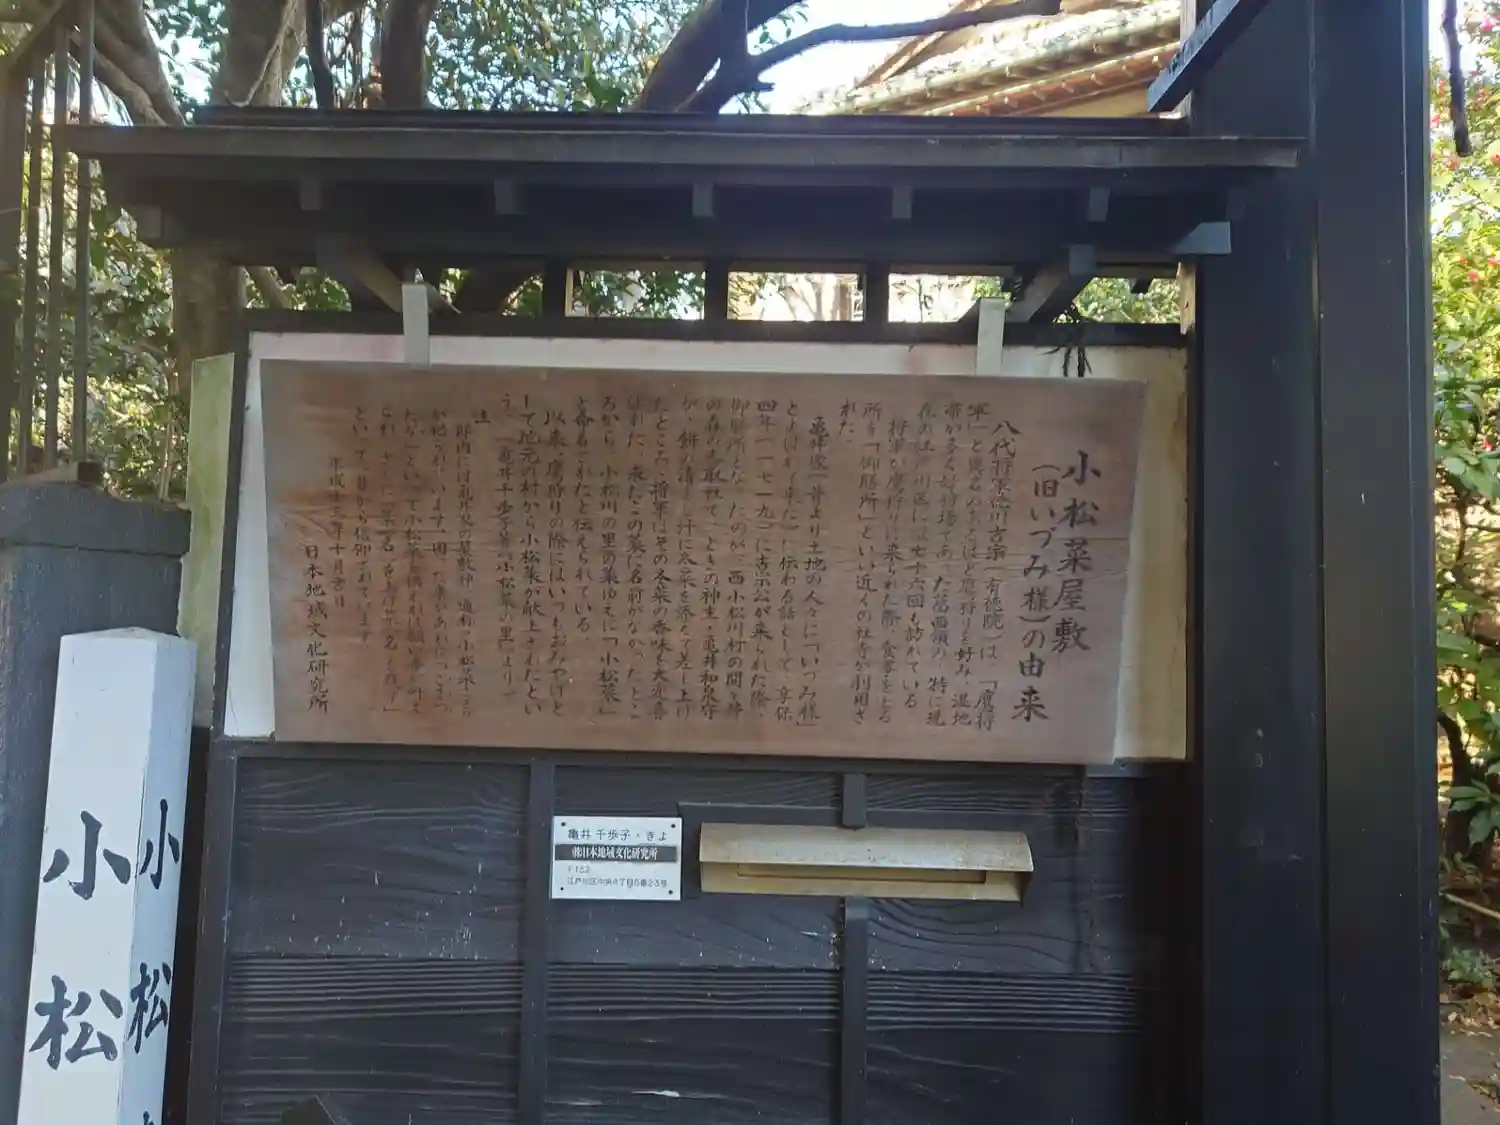 小松菜屋敷
(旧いづみ様)の由来
八代将軍徳川吉宗(有徳院)は、「鷹将
軍」と異名のあるほど鷹狩りを好み、湿地
帯が多く好狩場であった葛西領の、特に現
在の江戸川区には七十六回も訪れている
将軍が鷹狩りに来られた際、食事をとる
所を「御膳所」といい近くの社寺が利用さ
れた。
亀井家(昔より土地の人々に「いづみ様」
とよばれて来た)に伝わる話として、享保
四年(一七一九)に吉宗公が来られた際、
御膳所となったのが、西小松川村の間々井
の森の香取社で、ときの神主・亀井和泉守
が、餅の清し汁に冬菜を添えて差し上げ
たところ、将軍はその冬菜の香味を大変喜
ばれた。来たこの菜に名前がなかったとこ
ろから、小松川の里の菜ゆえに「小松菜」
と命名されたと伝えられている。
以来、鷹狩りの際にはいつもおみやげと
して地元の村から小松菜が献上されたとい
う。(「亀井千歩子著『小松菜の里』より)
注
邸内には亀井家の屋敷神、通称・小松菜
が祀られています。困った事があれば「こまつ
たな」といって小松菜を供えれば願い事が叶え
られ、
といって、昔から信仰されています。
平成十三年十月吉日
日本地域文化研究所
亀井 千歩子・きよ
㈱日本地域文化研究所
〒132
江戸川区中央4丁目5番23号
小松
小松